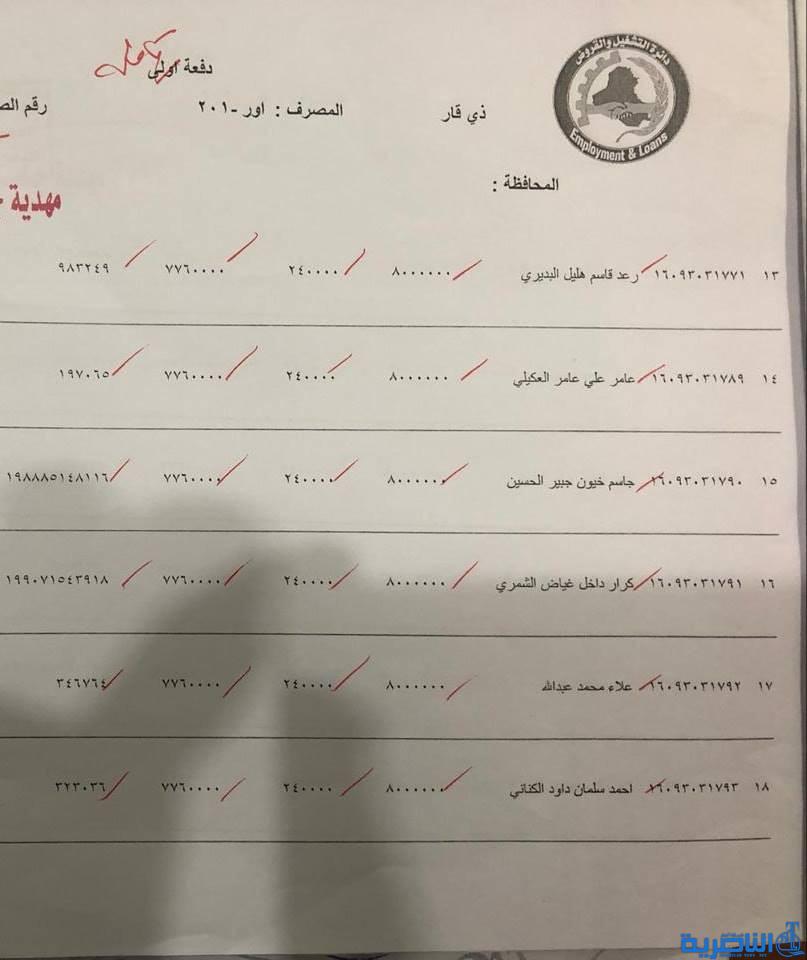 دائرة التشغيل والقروض
Employment & Loans
دفعة اولى
ذي قار
المصرف : اور -٢٠١
رقم الص
المحافظة :
مهدية
١٣ ١٦٠٩٣٠٣١٧٧١ رعد قاسم هليل البديري ٨٠٠٠٠٠٠ ٢٤٠٠٠٠ ٧٧٦٠٠٠٠ ٩٨٣٢٤٩
١٤ ١٦٠٩٣٠٣١٧٨٩ عامر علي عامر العكيلي ٨٠٠٠٠٠٠ ٢٤٠٠٠٠ ٧٧٦٠٠٠٠ ١٩٧٠٦٥
١٥ ١٦٠٩٣٠٣١٧٩٠ جاسم خيون جبير الحسين ٨٠٠٠٠٠٠ ٢٤٠٠٠٠ ٧٧٦٠٠٠٠ ١٩٨٨٨٥١٤٨١١٦
١٦ ١٦٠٩٣٠٣١٧٩١ كرار داخل غياض الشمري ٨٠٠٠٠٠٠ ٢٤٠٠٠٠ ٧٧٦٠٠٠٠ ١٩٩٠٧١٥٤٣٩١٨
١٧ ١٦٠٩٣٠٣١٧٩٢ علاء محمد عبدالله ٨٠٠٠٠٠٠ ٢٤٠٠٠٠ ٧٧٦٠٠٠٠ ٣٤٦٧٦٤
١٨ ١٦٠٩٣٠٣١٧٩٣ احمد سلمان داود الكناني ٨٠٠٠٠٠٠ ٢٤٠٠٠٠ ٧٧٦٠٠٠٠ ٣٢٣٠٣٦
الناصرية